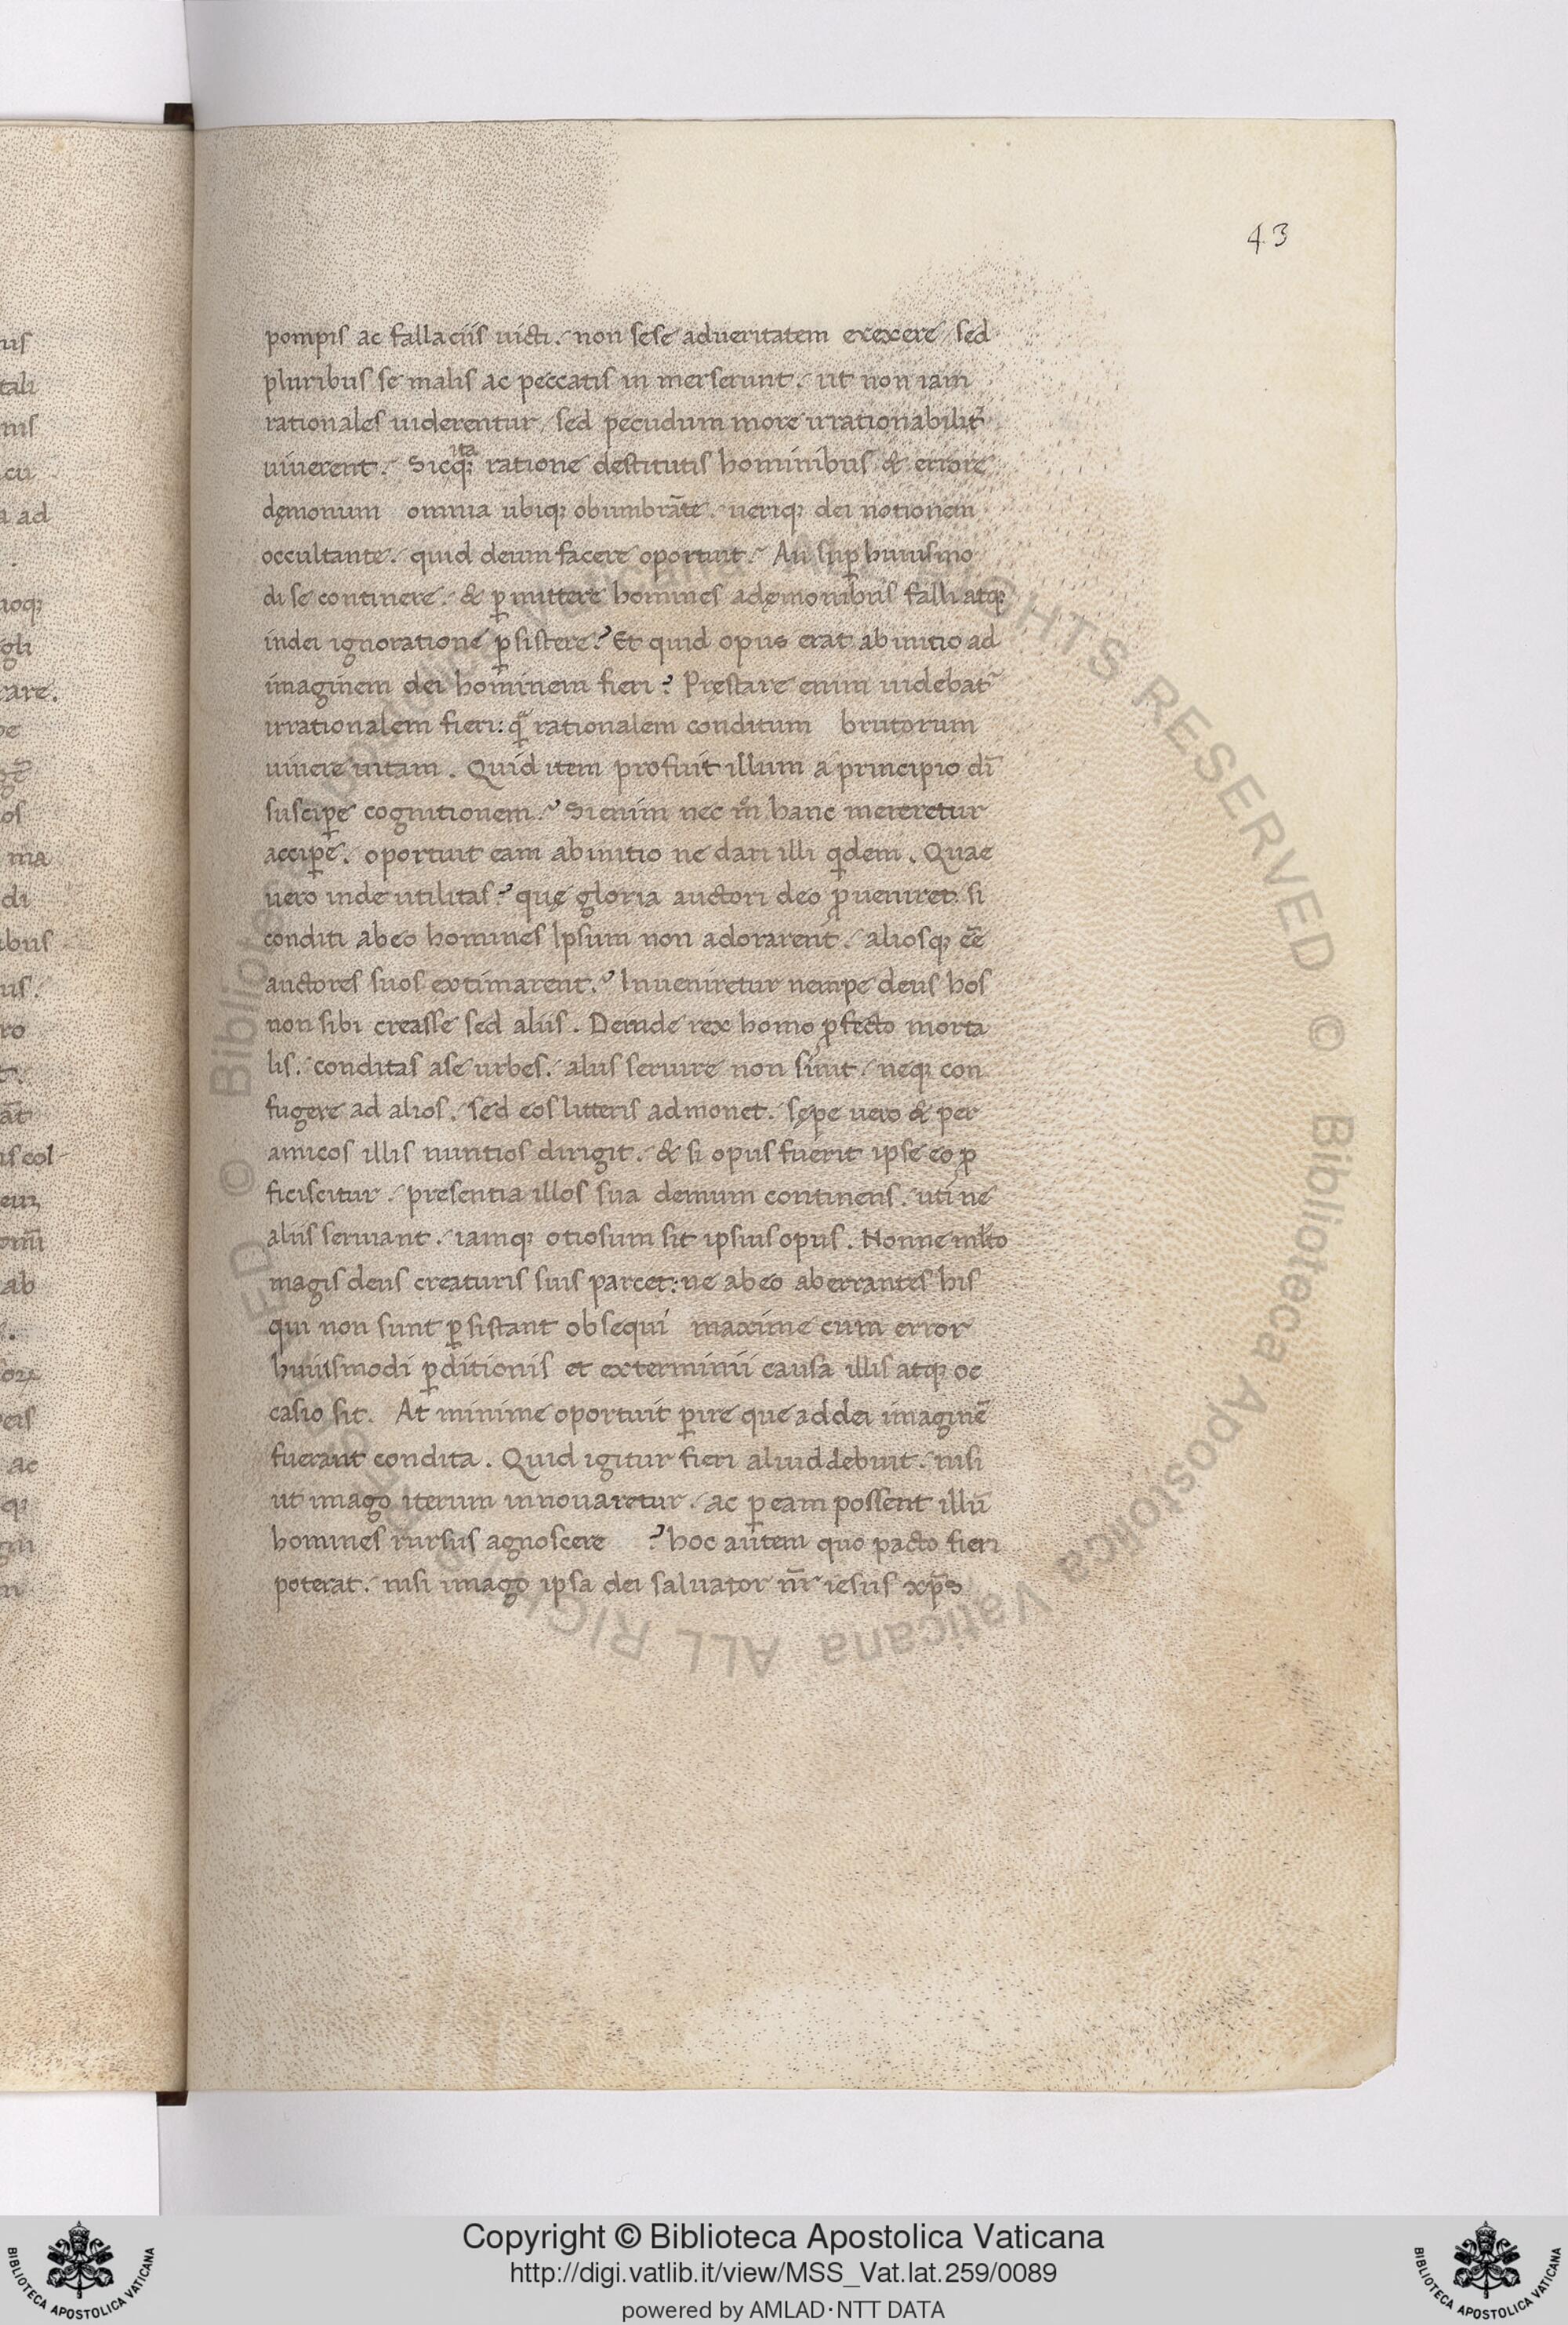 43
pompis ac fallaciis uicti. non sese ad ueritatem erexere / sed
pluribus se malis ac peccatis in merserunt. ut non iam
rationales uiderentur / sed pecudum more irrationabilit̃
uiuerent. Sicq; ita ratione destitutis hominibus & errore
dęmonum omnia ubiq; obumbrāte. ueriq; dei notionem
occultante. quid deum facere oportuit. An sup̱ huiusmo
di se continere. & p̱mittere homines a dęmonibus falli atq;
in dei ignoratione p̱sistere? Et quid opus erat ab initio ad
imaginem dei hominem fieri? Pręstare enim uidebat̃
irrationalem fieri: q̃ rationalem conditum brutorum
uiuere uitam. Quid item profuit illum a principio dī
suscip̱e cognitionem? Si enim nec m̊ hanc meretretur
accip̱e. oportuit eam ab initio ne dari illi qdem. Quae
uero inde utilitas? quę gloria auctori deo ꝓueniret. si
conditi ab eo homines Ipsum non adorarent. aliosq; eē
auctores suos extimarent? Inueniretur nempe deus hos
non sibi creasse sed aliis. Deinde rex homo ꝓfecto morta
lis. conditas a se urbes. aliis seruire non sinit. neq; con
fugere ad alios. sed eos litteris admonet. sępe uero & per
amicos illis nuntios dirigit. & si opus fuerit ipse eo ꝓ
ficiscitur. presentia illos sua demum continens. uti ne
aliis seruiant. iamq; otiosum sit ipsius opus. Nonne mlto
magis deus creaturis suis parcet: ne ab eo aberrantes his
qui non sunt p̱sistant obsequi maxime cum error
huiusmodi p̱ditionis et exterminii causa illis atq; oc
casio sit. At minime oportuit p̱ire que ad dei imaginē
fuerant condita. Quid igitur fieri aliud debuit. nisi
ut imago iterum innouaretur. ac p̱ eam possent illū
homines rursus agnoscere ? hoc autem quo pacto fieri
poterat. nisi imago ipsa dei saluator nr̄ iesus xp̄s
Copyright © Biblioteca Apostolica Vaticana
http://digi.vatlib.it/view/MSS_Vat.lat.259/0089
powered by AMLAD·NTT DATA